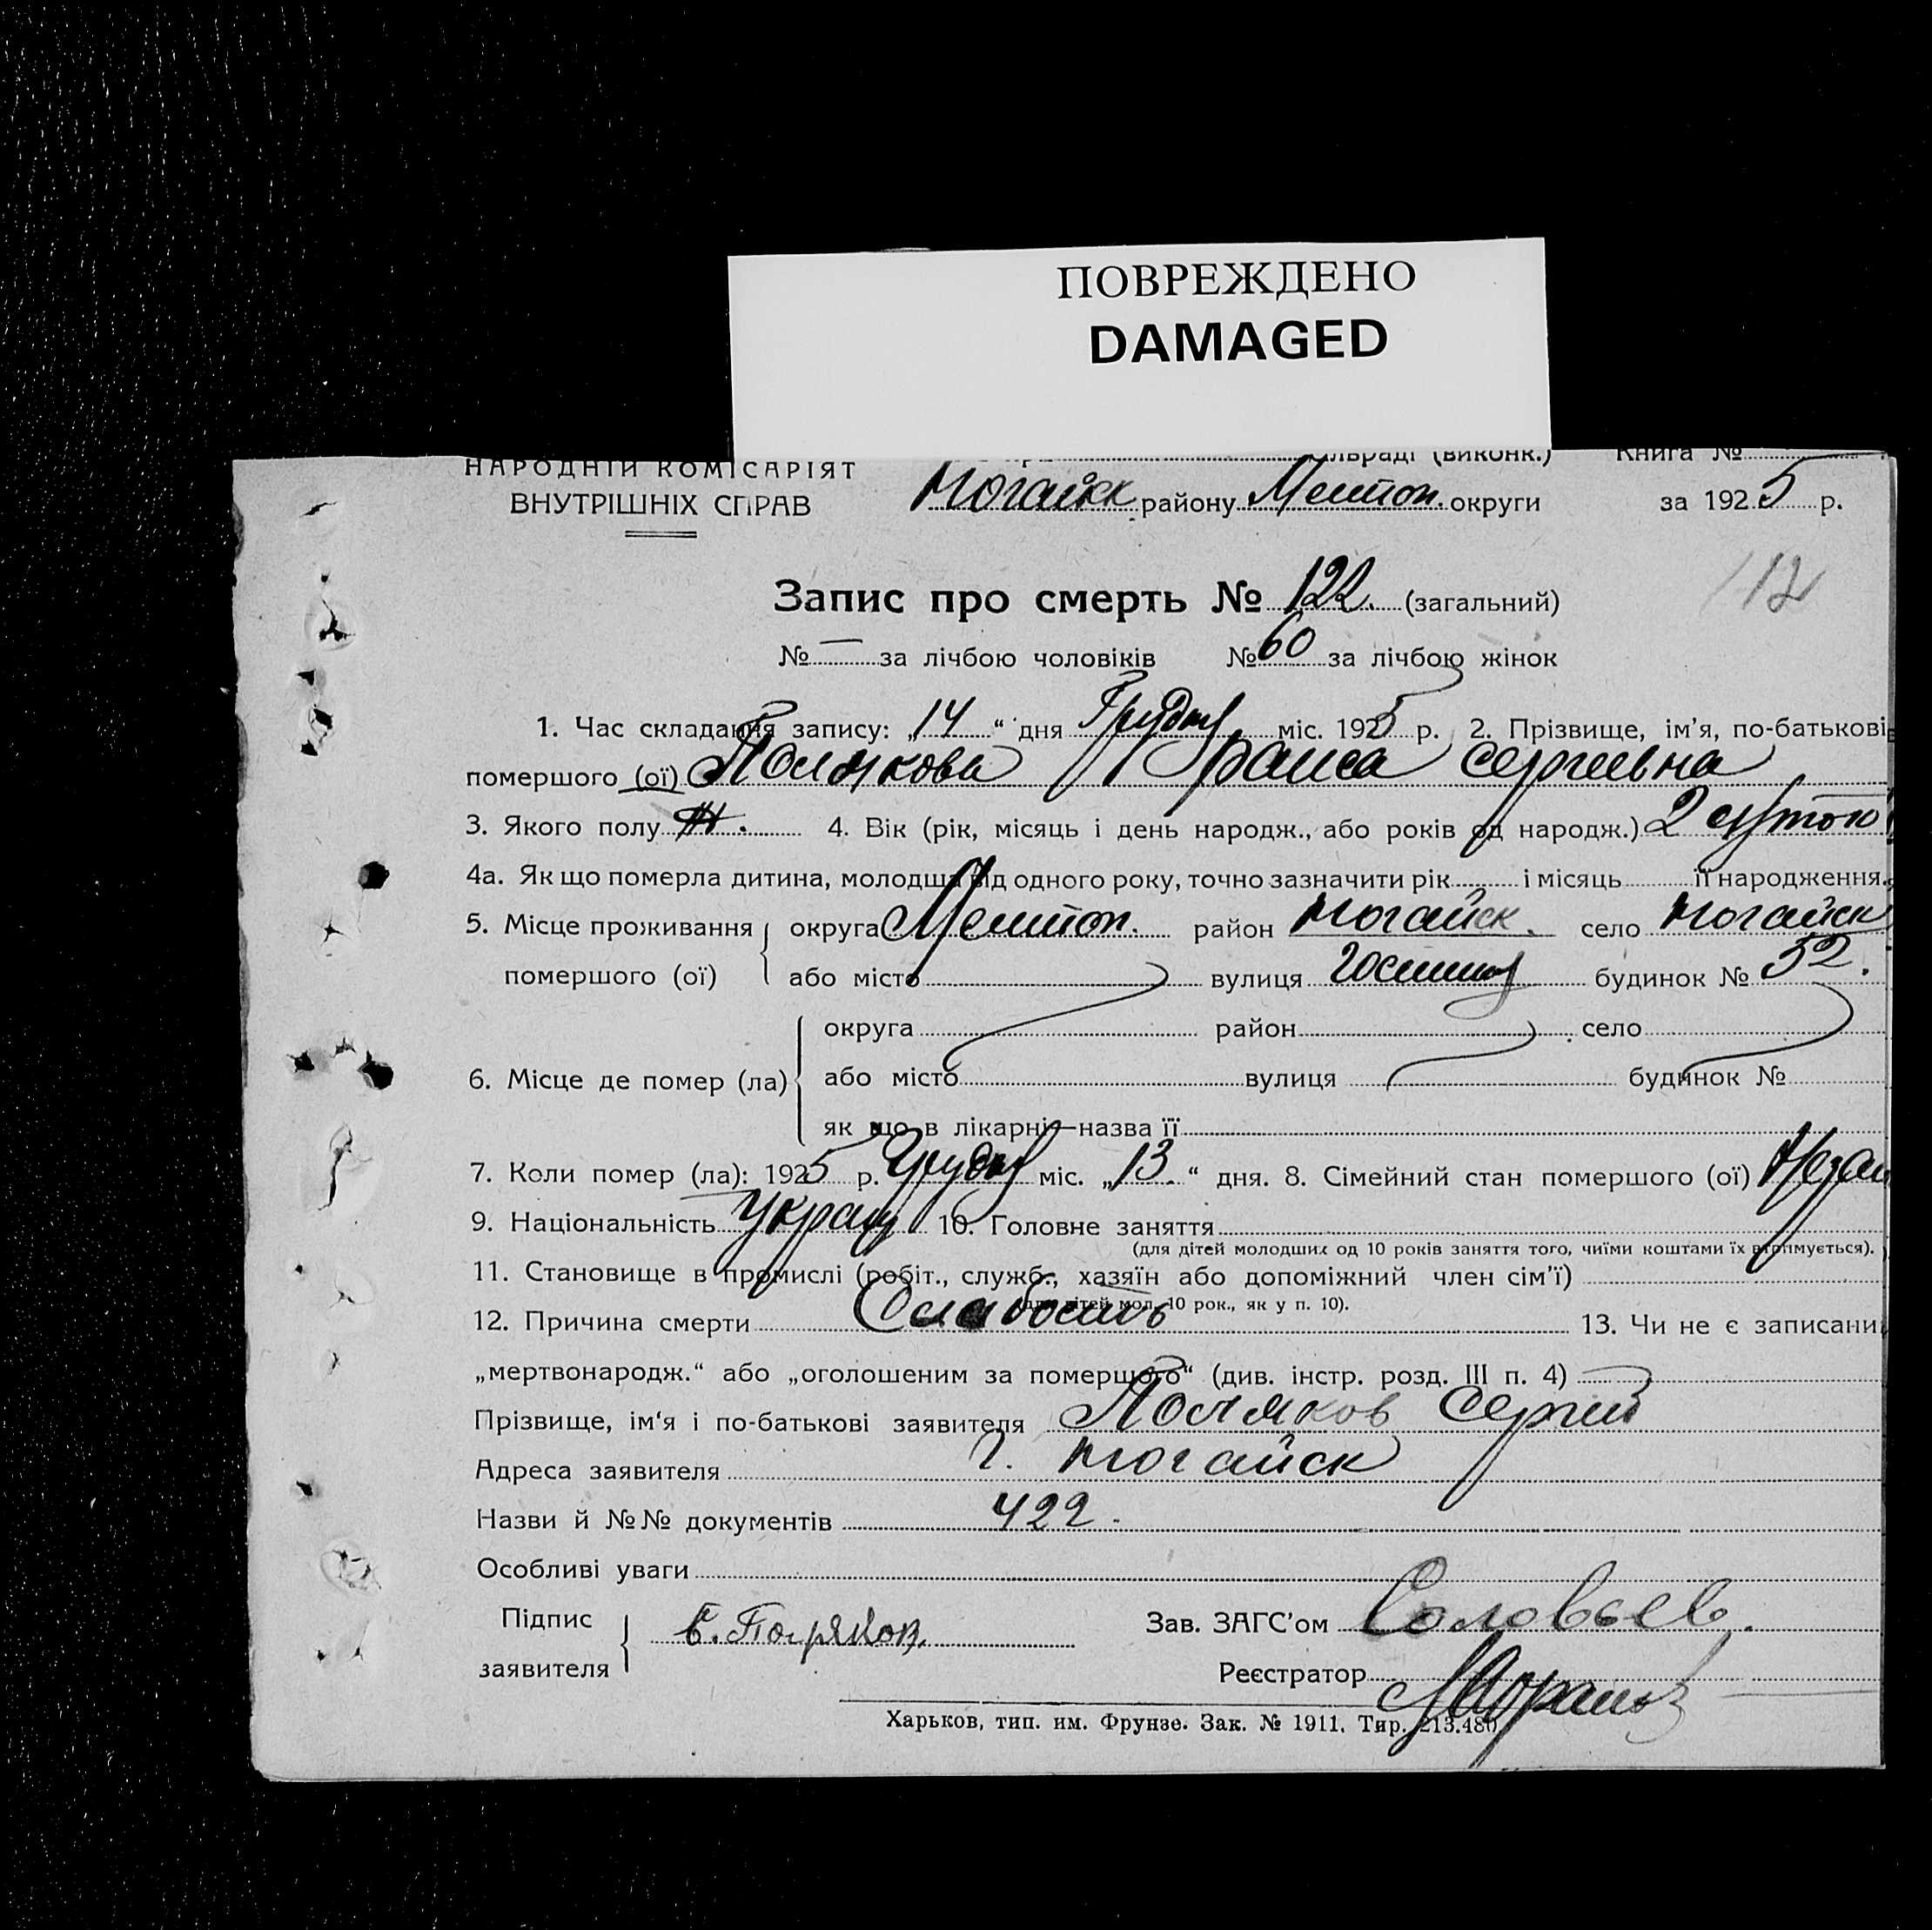 ПОВРЕЖДЕНО
DAMAGED
НАРОДНІЙ КОМІСАРІЯТ (виконк.) Книга №
ВНУТРІШНІХ СПРАВ Ногайск району Мелітоп. округи за 1925 р.
112
Запис про смерть № 122. (загальний)
№ — за лічбою чоловіків № 60 за лічбою жінок
1. Час складання запису: „14“ дня Грудня міс. 1925 р. 2. Прізвище, ім'я, по-батькові
помершого (ої) Полякова Раиса Сергиевна
3. Якого полу Ж. 4. Вік (рік, місяць і день народж., або років од народж.) 2
4а. Як що померла дитина, молодща від одного року, точно зазначити рік і місяць її народження.
5. Місце проживання округа Мелитоп. район Ногайск. село Ногайск
помершого (ої) або місто вулиця будинок № 52.
округа район село
6. Місце де помер (ла) або місто вулиця будинок №
як що в лікарні—назва її
7. Коли помер (ла): 1925 р. Грудня міс. „13.“ дня. 8. Сімейний стан помершого (ої)
9. Національність 10. Головне заняття
(для дітей молодших од 10 років заняття того, чиїми коштами їх втримується).
11. Становище в промислі (робіт., служб., хазяїн або допоміжний член сім'ї)
(для дітей мол. 10 рок., як у п. 10).
12. Причина смерти Слабость 13. Чи не є записани
„мертвонародж.“ або „оголошеним за помершого“ (див. інстр. розд. III п. 4)
Прізвище, ім'я і по-батькові заявителя Поляков Сергий
Адреса заявителя г. Ногайск
Назви й №№ документів 422.
Особливі уваги
Підпис заявителя С. Поляков. Зав. ЗАГС'ом Соловьев.
Реєстратор
Харьков, тип. им. Фрунзе. Зак. № 1911. Тир. 213.480